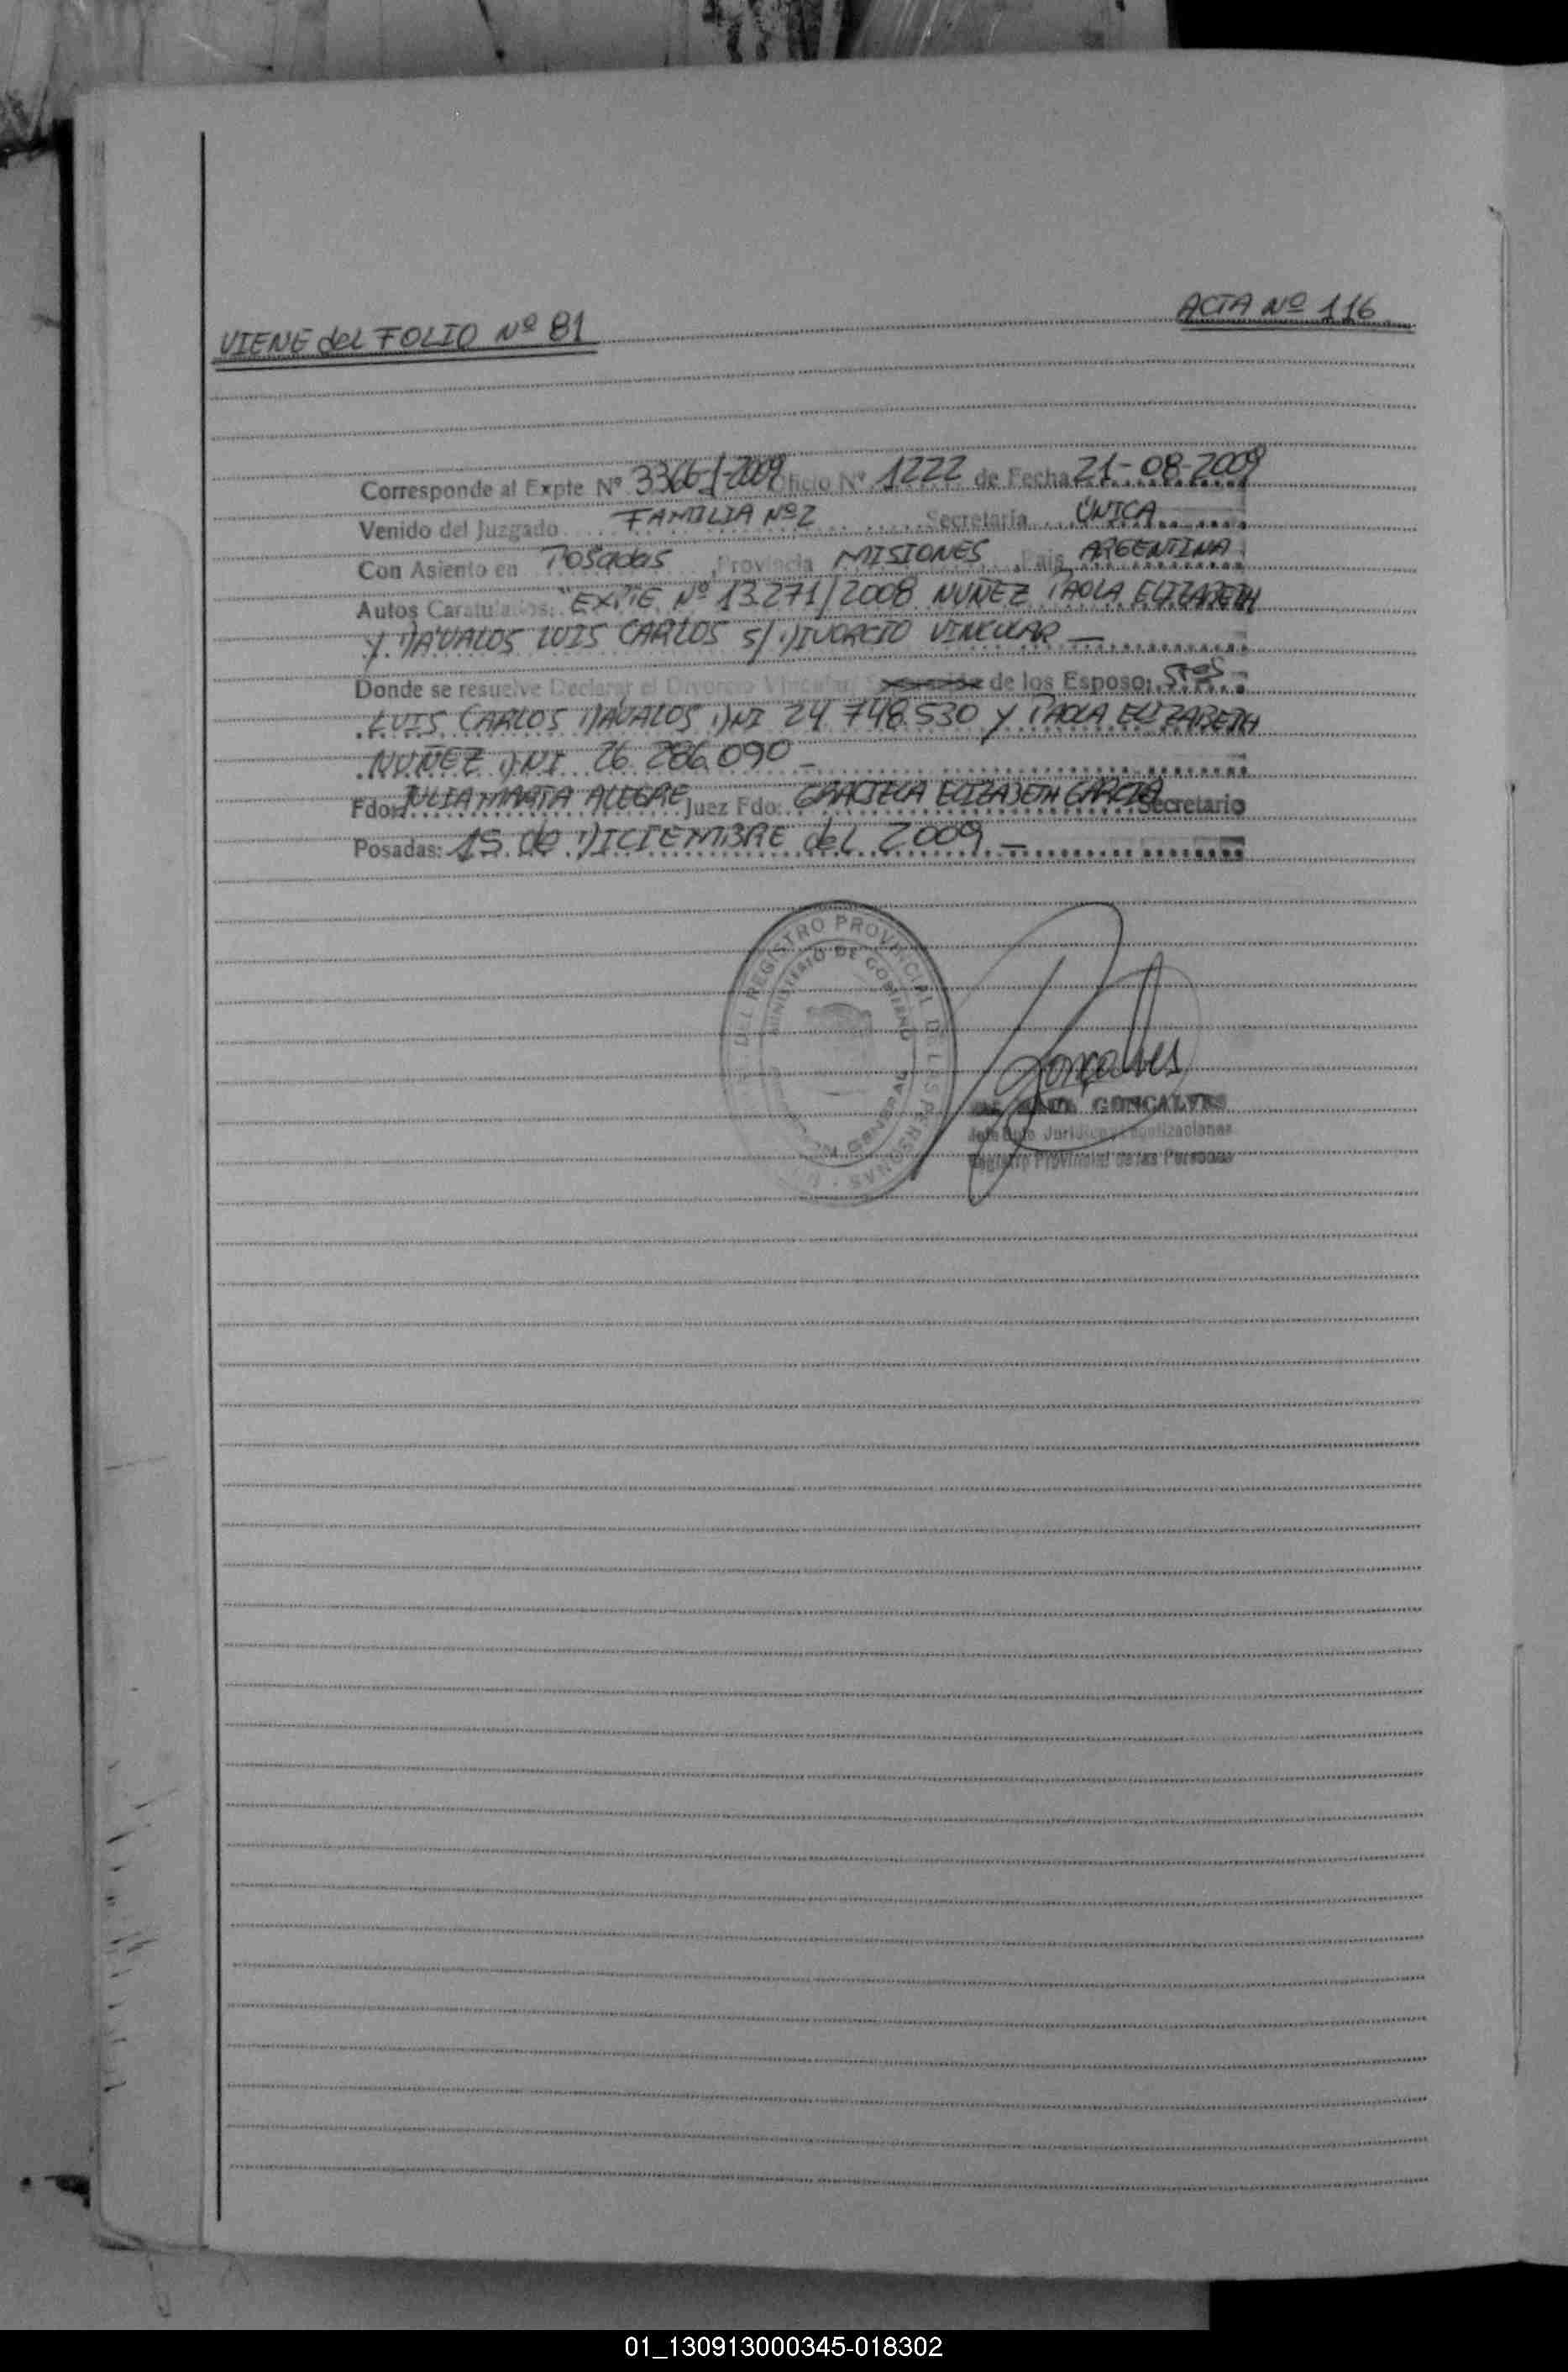 ACTA Nº 116
VIENE del FOLIO Nº 81
Corresponde al Expte Nº 3366-J-2009 Oficio Nº 1222 de Fecha 21-08-2009
Venido del Juzgado FAMILIA Nº 2 Secretaria ÚNICA
Con Asiento en Posadas, Provincia MISIONES, Pais ARGENTINA
Autos Caratulados: "EXPTE Nº 13.271/2008 NUÑEZ PAOLA ELIZABETH
Y DÁVALOS LUIS CARLOS S/ DIVORCIO VINCULAR —
Donde se resuelve Declarar el Divorcio Vincular de los Esposo: Sres
LUIS CARLOS DÁVALOS DNI 24.748.530 Y PAOLA ELIZABETH
NUÑEZ DNI 26.286.090 –
Fdo: JULIA MARTA ALEGRE Juez Fdo: GRACIELA ELIZABETH GARCIA Secretario
Posadas: 15 de DICIEMBRE del 2009 –
DEL REGISTRO PROVINCIAL DE LAS PERSONAS
MINISTERIO DE GOBIERNO
GENERAL
Goncalves
GONCALVES
Jefe Dpto Juridico y Legalizaciones
Registro Provincial de las Personas
01_130913000345-018302